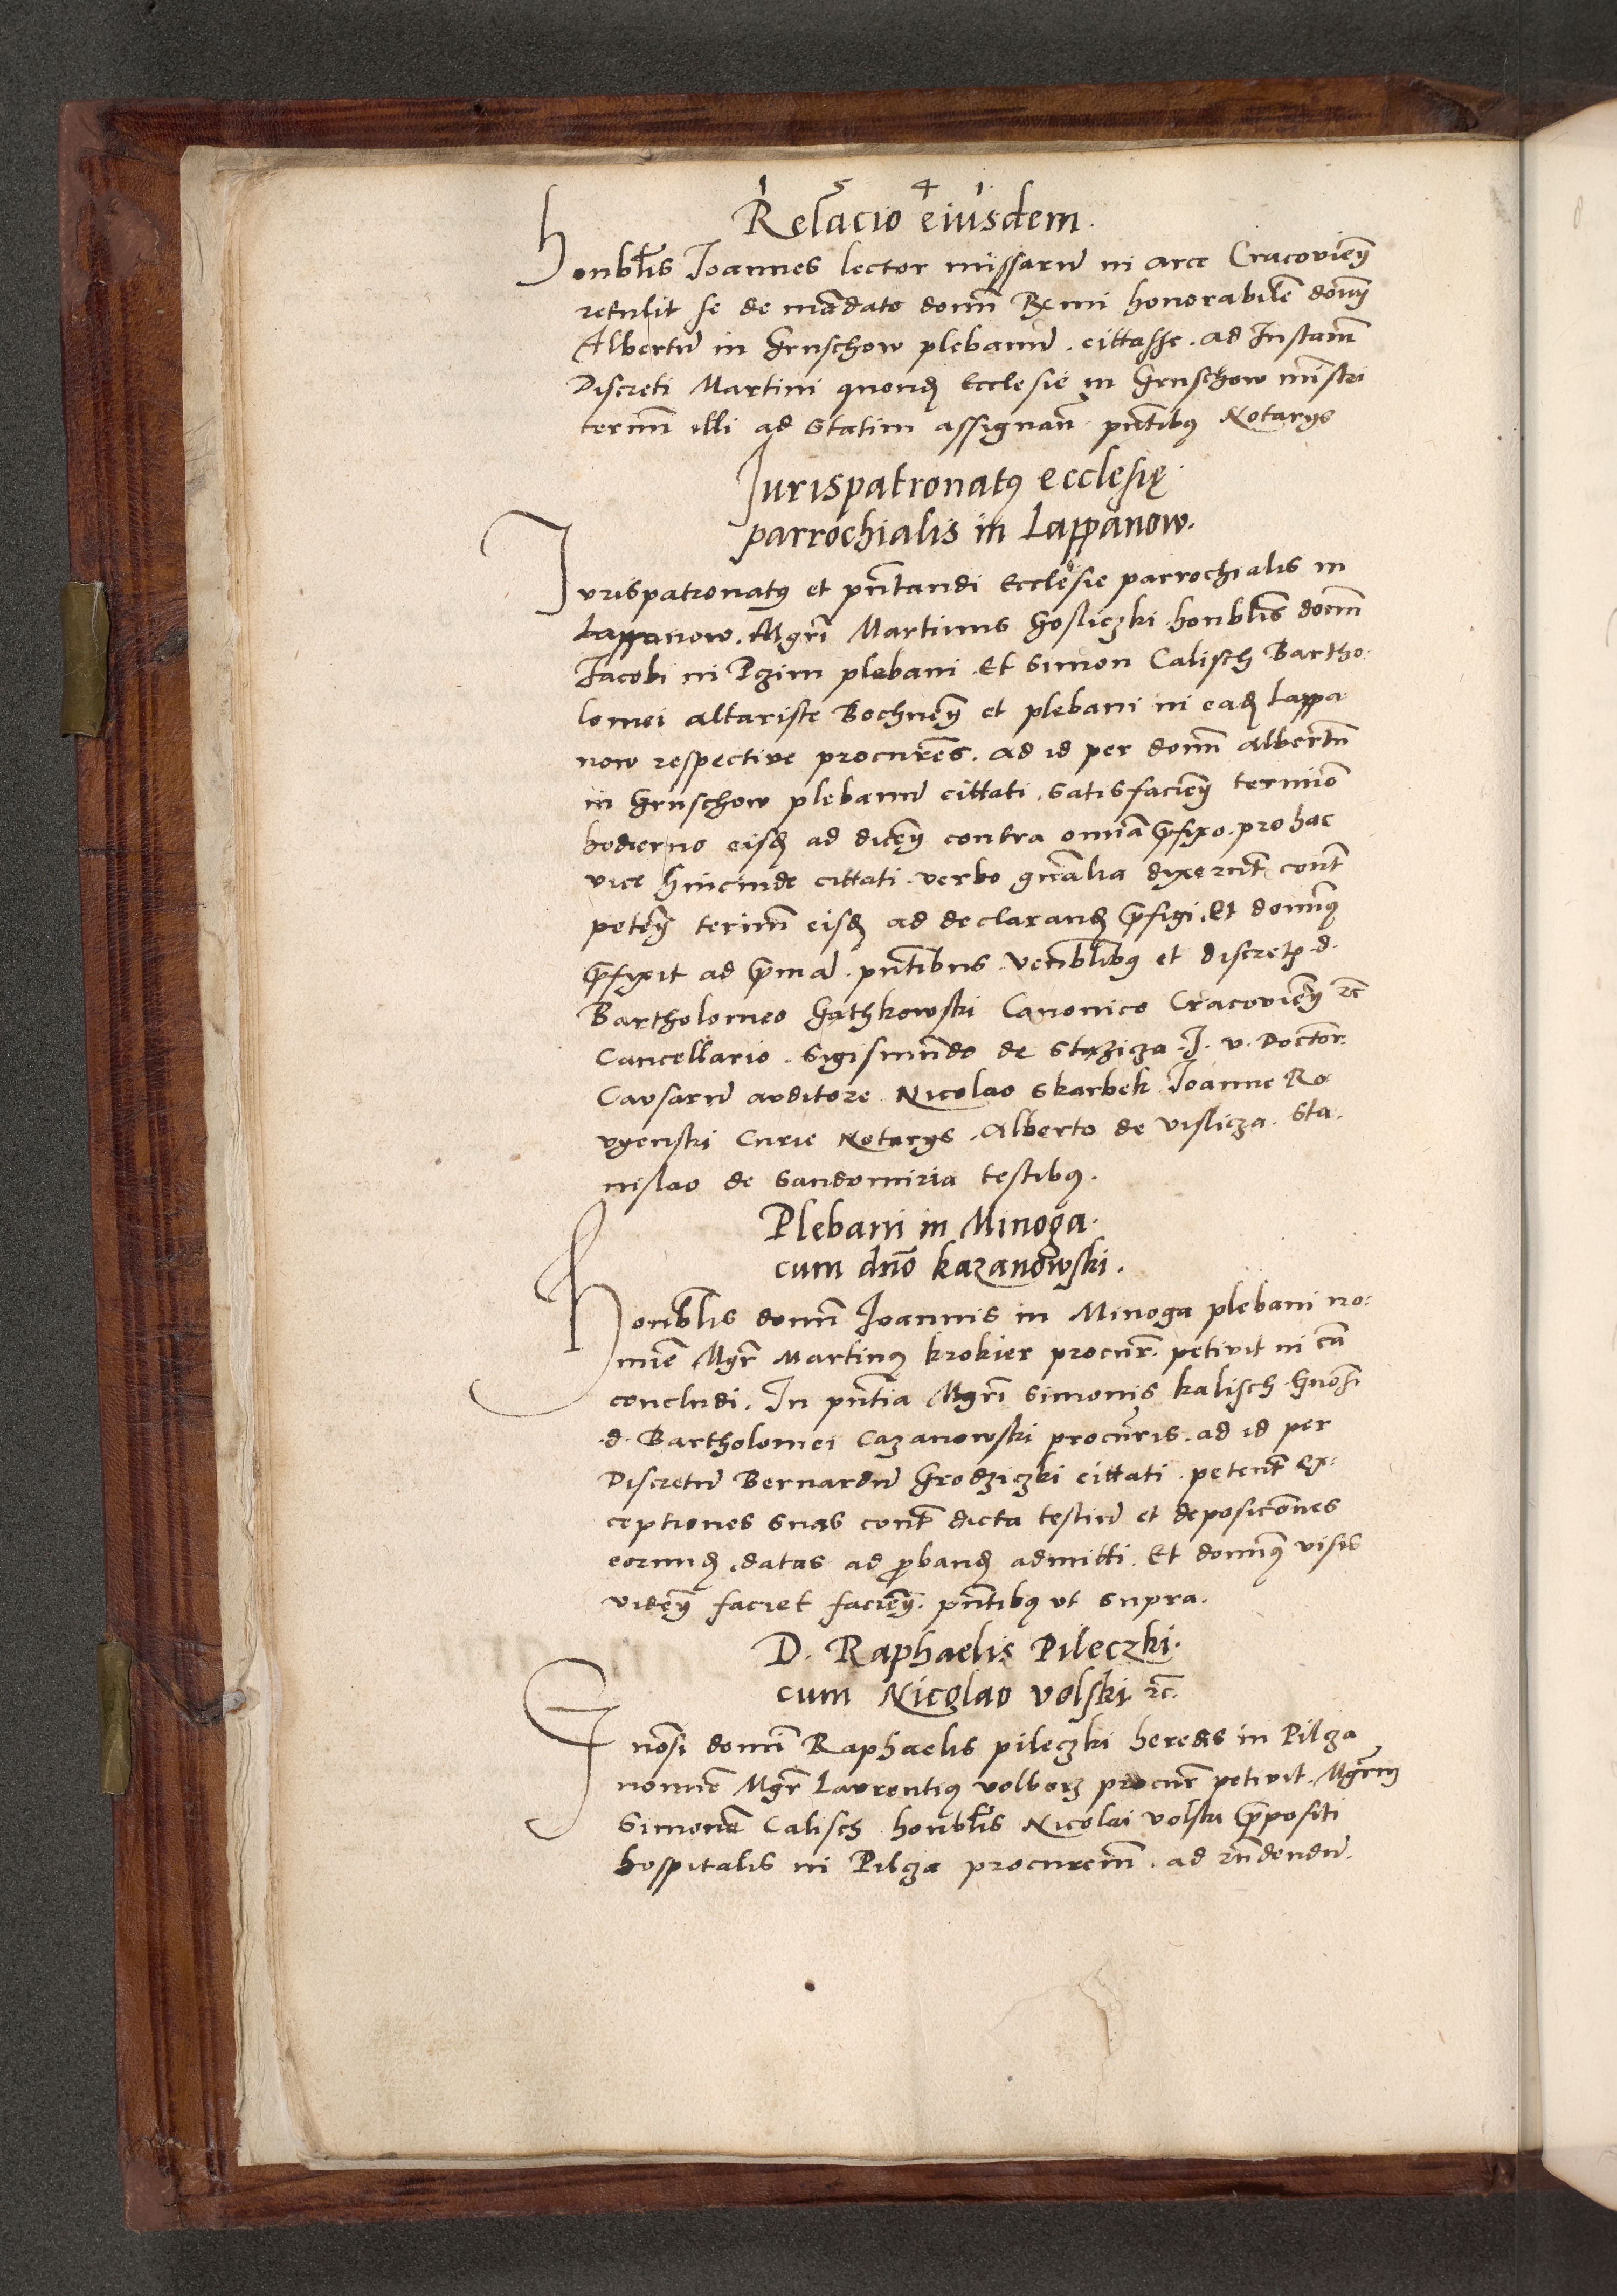 1 5 4 1
Relacio eiusdem.
Honbl̃is Joannes lector missarũ in arce Cracovieñ
retulit se de mãdato domĩ Rx̃mi honorabilẽ domĩ
Albertũ in Gruschow plebanũ . cittasse . ad Instañ
Discreti Martini quondã Ecclesie in Gruschow mĩstri
termĩ illi ad statim assignañ pñtibus Notarys
Jurispatronatus ecclesię
parrochialis in Lappanow.
Jurispatronatus et pñtandi Ecclesie parrochialis in
Lappanow . Mgri Martinus Gosliczki honblis domĩ
Jacobi in plebani . Et Simon Calisch Bartho:
lomei altariste Bochneñ et plebani in eadẽ Lappa
now respective procurẽs . ad id per domĩ albertũ
in Gruschow plebanũ cittati . satisfacieñ termiõ
hodierno eisdẽ ad diceñ contra omĩa p̃fixo . pro hac
vice hincinde cittati . verbo gñalia dixerũt cont̃
peteñ termĩ eisdẽ ad declarandũ p̃figi . Et domĩus
p̃fixit ad p̃mã . pñtibus . Venblibus et discretis . d.
Bartholomeo Gathkowski Canonico Cracovieñ &c
Cancellario . Sigismundo de Stęzicza . J. v. Doctor.
Causarũ auditore Nicolao Skarbek Joanne Ro
vyenski Curie Notarys . Alberto de Vislicza . Sta.
nislao de Sandomiria testibus.
Plebani in Minoga.
cum dñõ kazanowski.
Honblis domĩ Joannis in Minoga plebani no:
mĩe Mgr̃ Martinus krokier procur̃. petivit in cã
concludi . In pñtia Mgri Simonis kalisch . Gnosi
.d. Bartholomei Cazanowski procuris . ad id per
Discretũ Bernardũ Grodziczki cittati . petent̃ Ex:
ceptiones suas cont̃ dicta testiũ et deposicõnes
eorundẽ . datas ad p̃bandũ admitti . Et domĩus visis
videñ faciet facieñ . pñtibus ut supra.
D. Raphaelis Pileczki.
cum Nicolao Volski &c.
Gnosi domĩ Raphaelis pileczki heredis in Pilcza
nomĩe Mgr̃ Laurentius volborz procur̃ petivit . Mgrm̃
Simonẽ Calisch honblis Nicolai Volski p̃positi
hospitalis in Pilcza procurem̃ . ad rñdendũ.